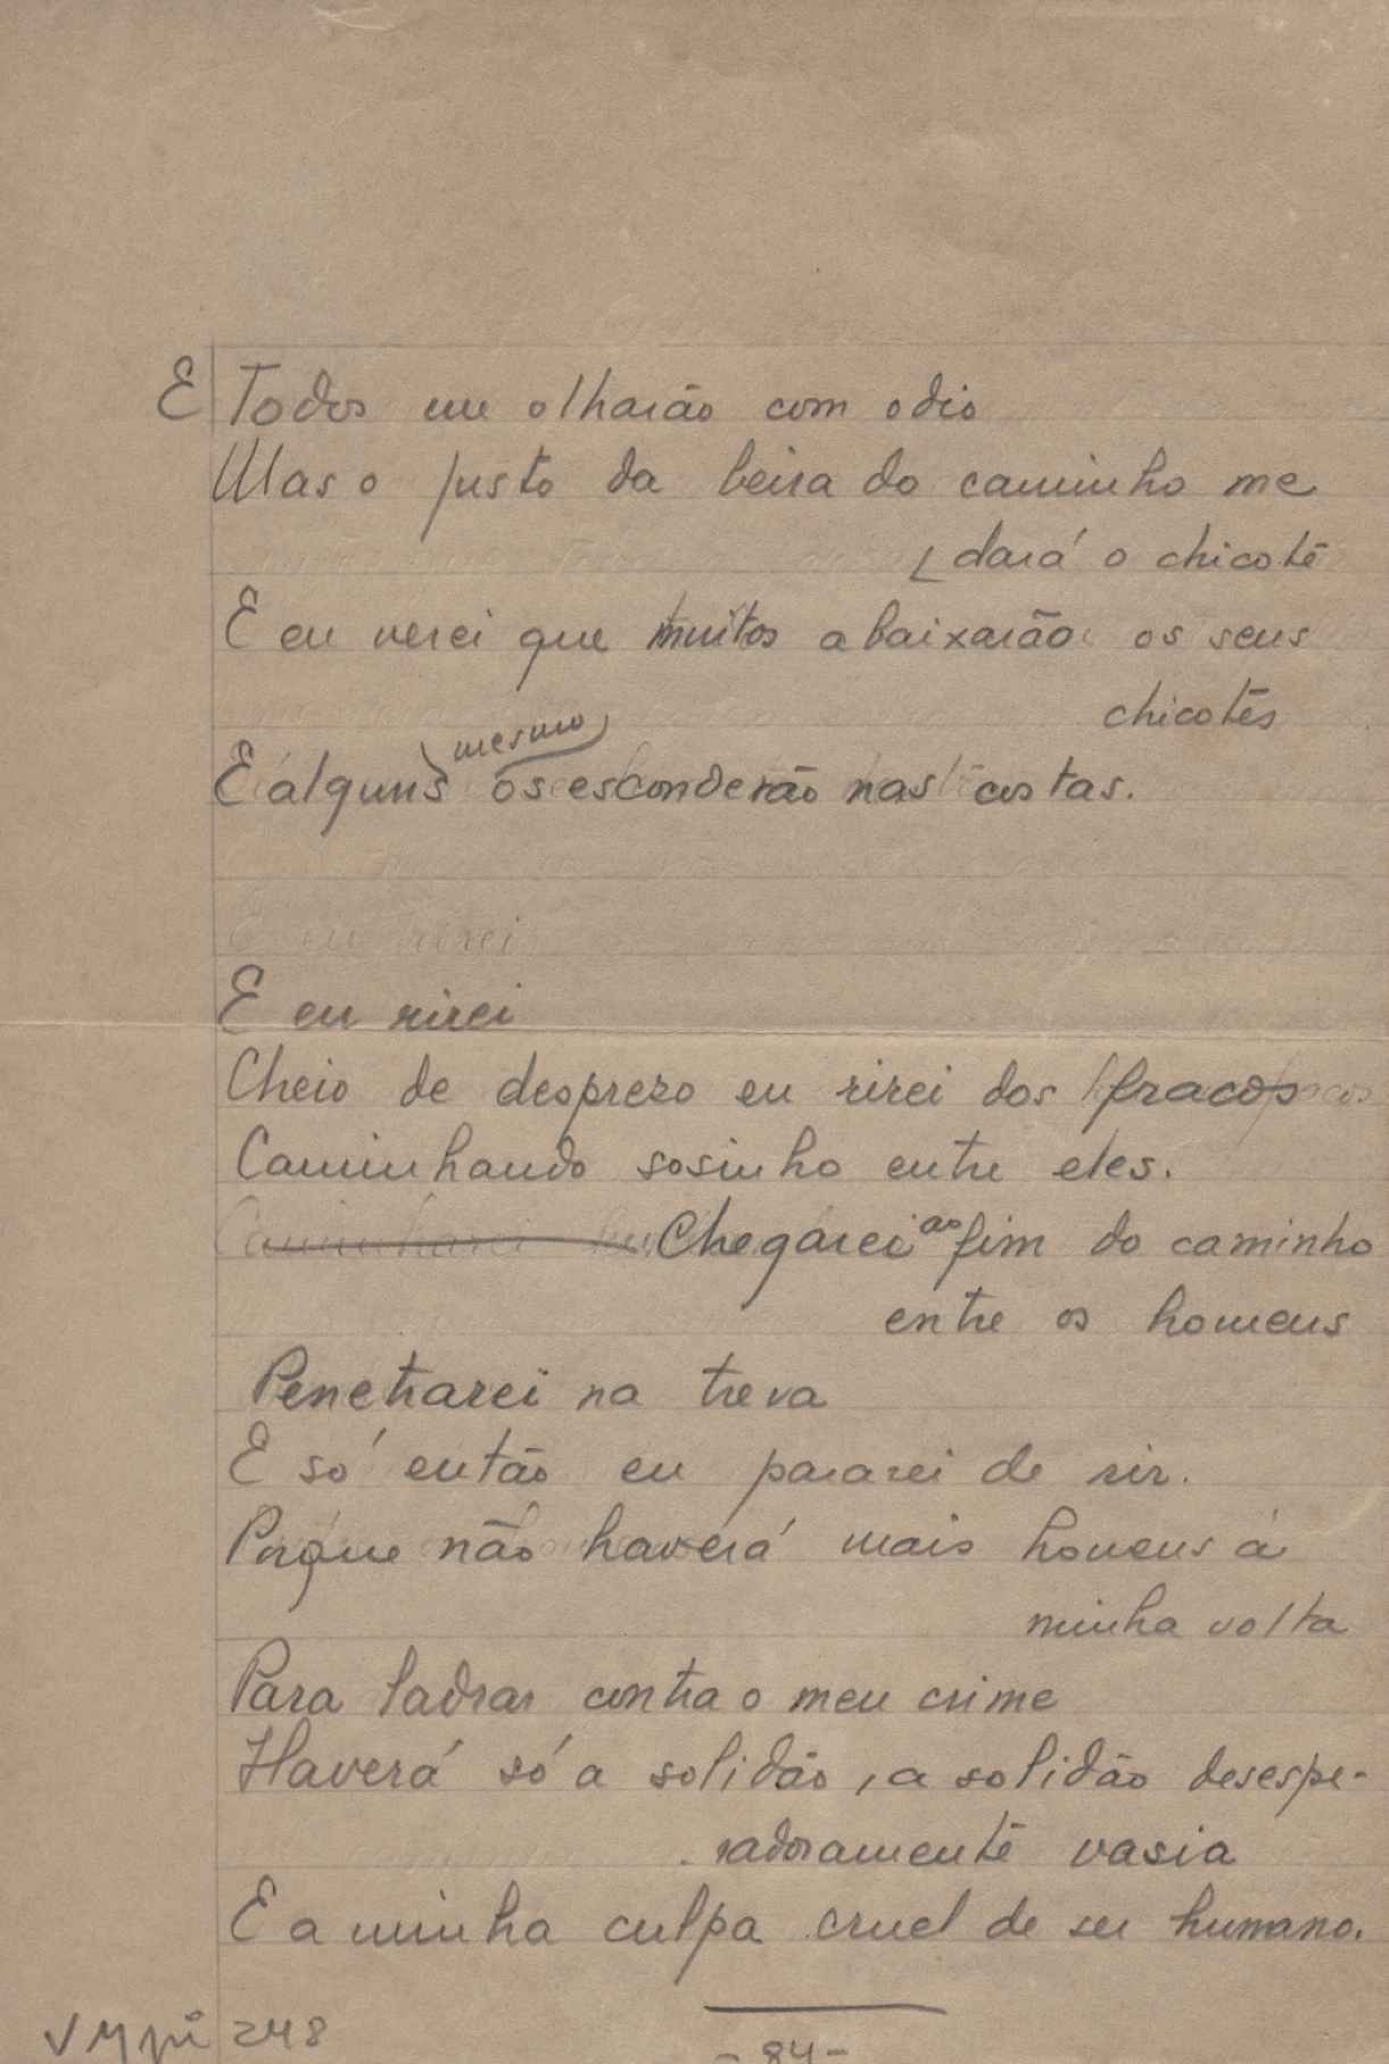 E Todos me olharão com odio
Mas o justo da beira do caminho me
[dará o chicote
E eu verei que muitos abaixarão os seus
chicotes
mesmo
E alguns os esconderão nas costas.
E eu rirei
E eu rirei
Cheio de desprezo eu rirei dos fracos
Caminhando sosinho entre eles.
Caminharei Chegarei ao fim do caminho
entre os homens
Penetrarei na treva
E só então eu pararei de rir.
Porque não haverá mais homens á
minha volta
Para ladrar contra o meu crime
Haverá só a solidão, a solidão desespe-
radoramente vasia
E a minha culpa cruel de ser humano.
VMpi 248
- 84 -